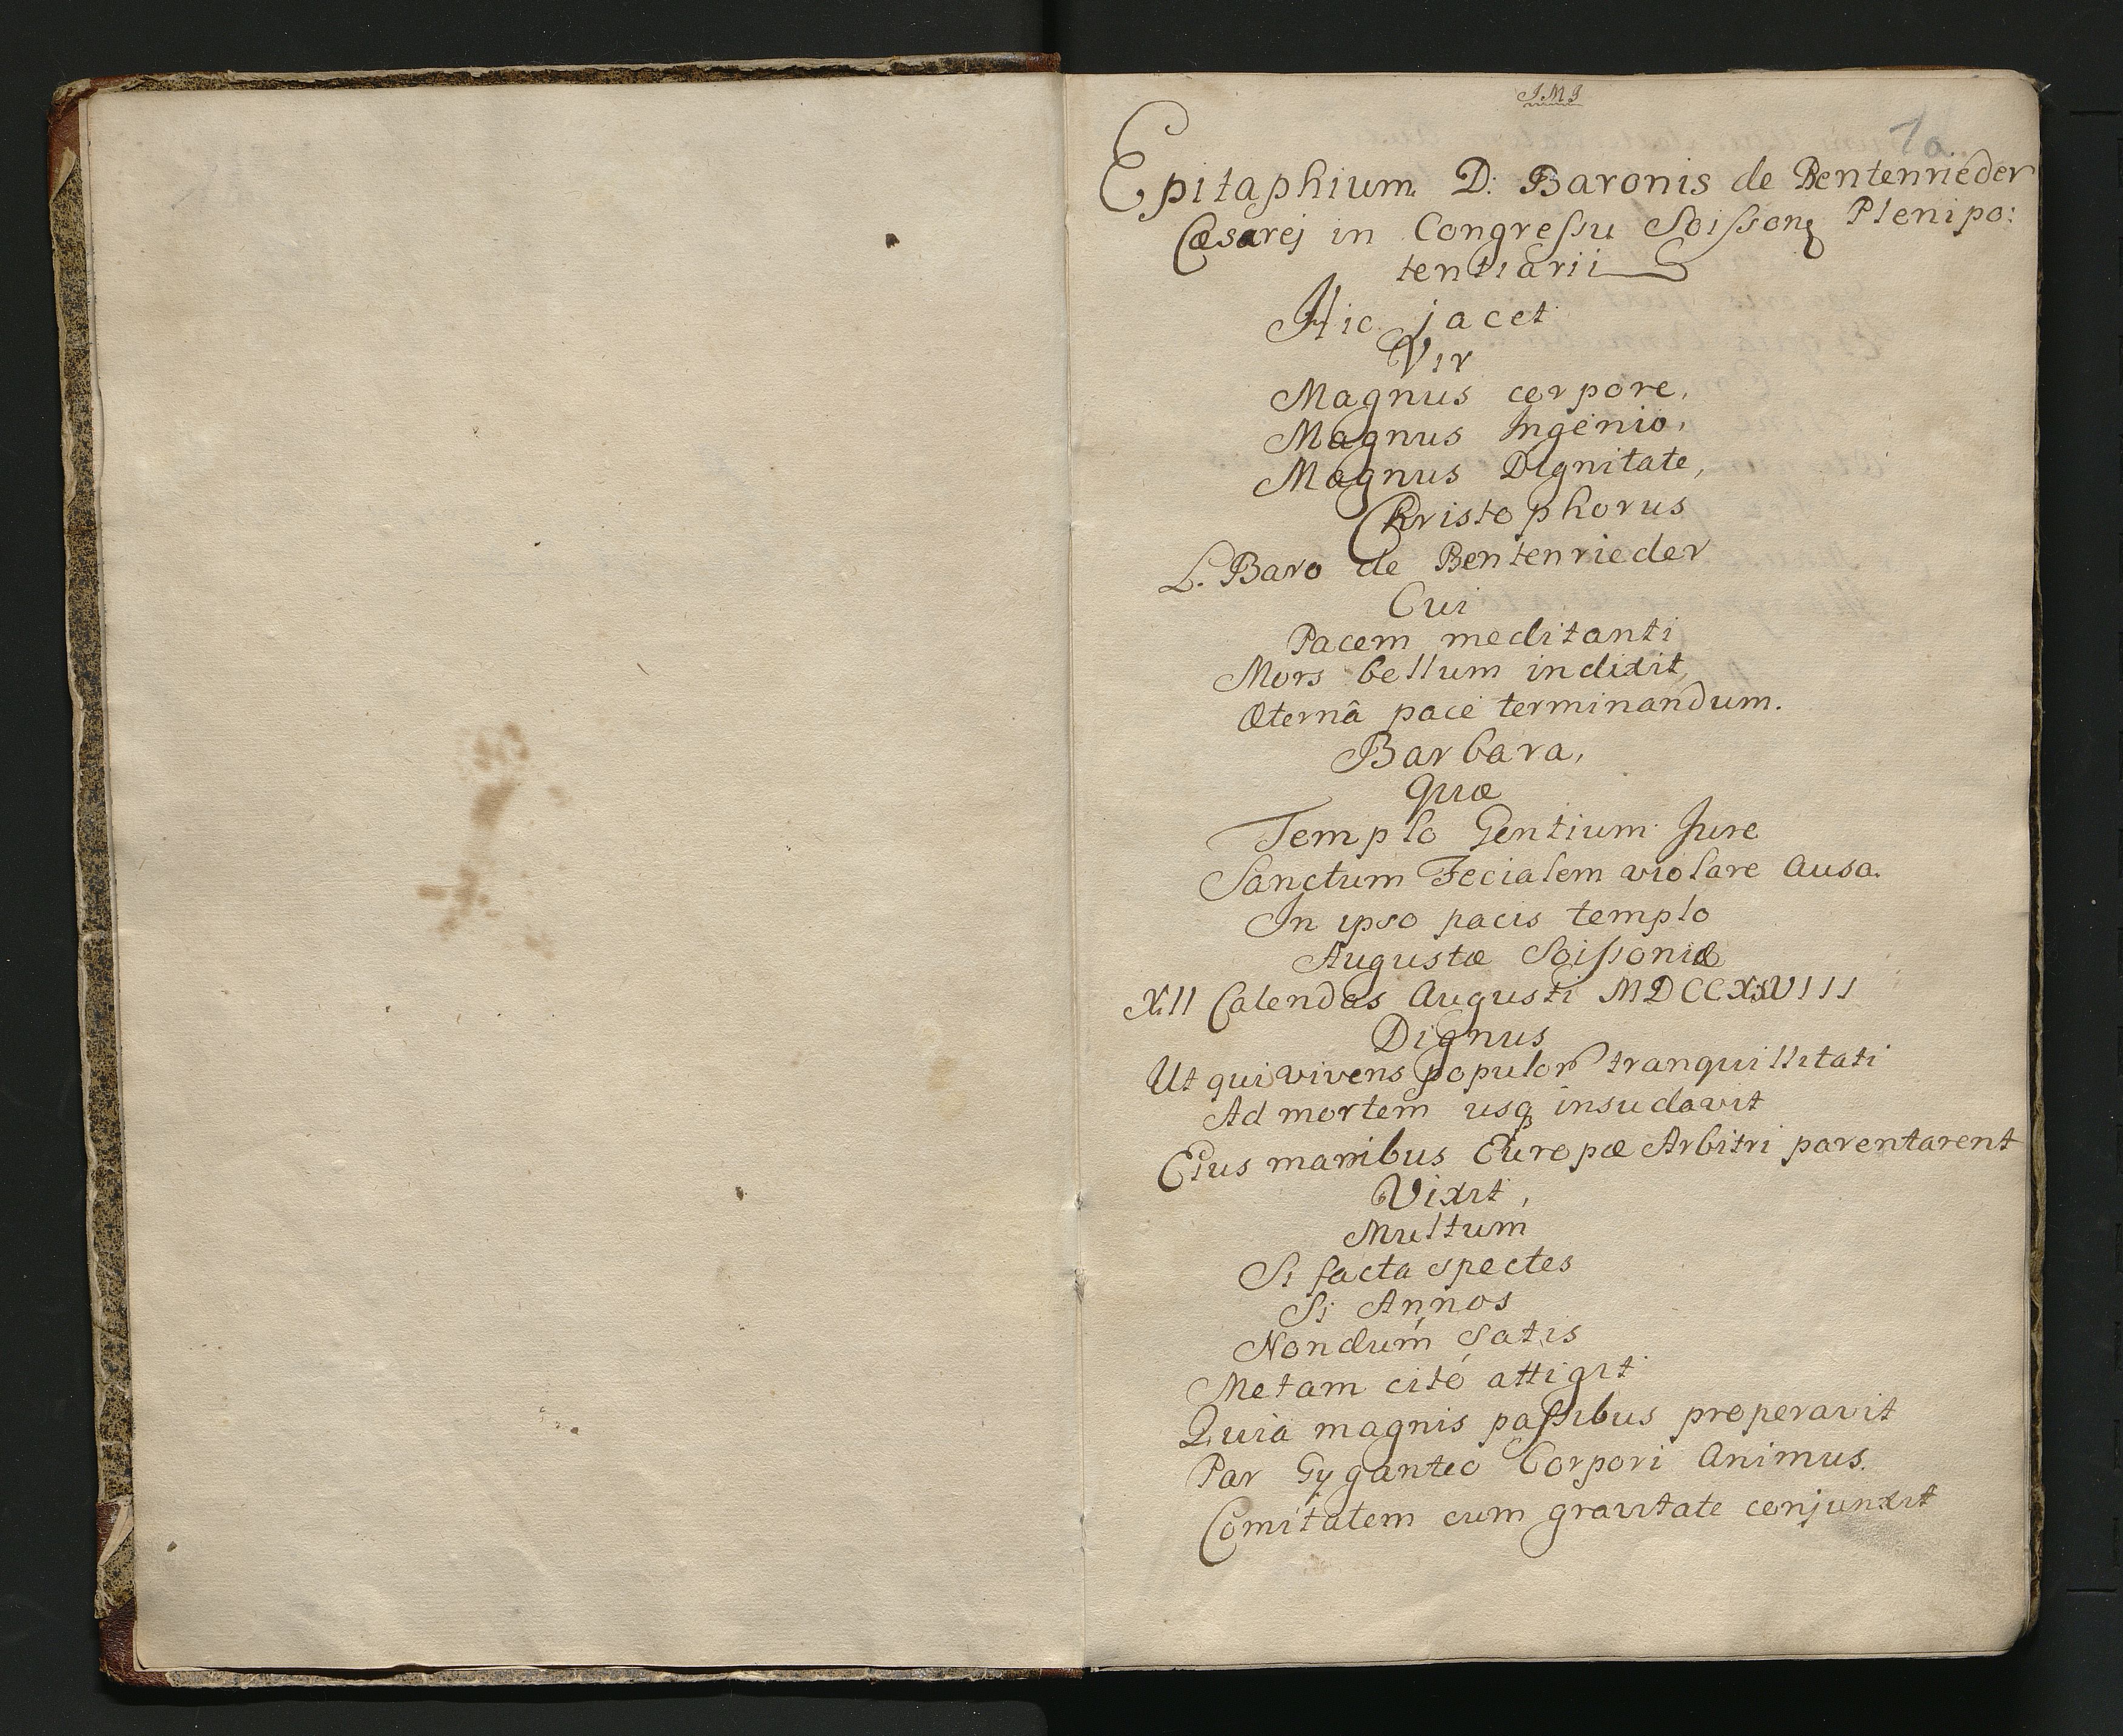 J.M.J
1a
Epitaphium D: Baronis de Bentenrieder
Cæsarej in Congressu Soissonę Plenipo:
tentiarii
Hic jacet
Vir
Magnus corpore,
Magnus Ingenio,
Magnus Dignitate,
Christophorus
L. Baro de Bentenrieder
Cui
Pacem meditanti
Mors bellum indixit,
Æternâ pace terminandum.
Barbara,
Quæ
Templo Gentium Jure
Sanctum Fecialem violare ausa.
In ipso pacis templo
Augustæ Soissoniæ
XII Calendas Augusti MDCCXXVIII
Dignus
Ut qui vivens populor tranquillitati
Ad mortem usq insudavit
Eius manibus Europæ Arbitri parentarent
Vixit,
Multum
Si facta spectes
Si Annos
Nondum satis
Metam citó attigit
Quia magnis passibus properavit
Par Gyganteo Corpori Animus.
Comitatem cum gravitate conjunxit